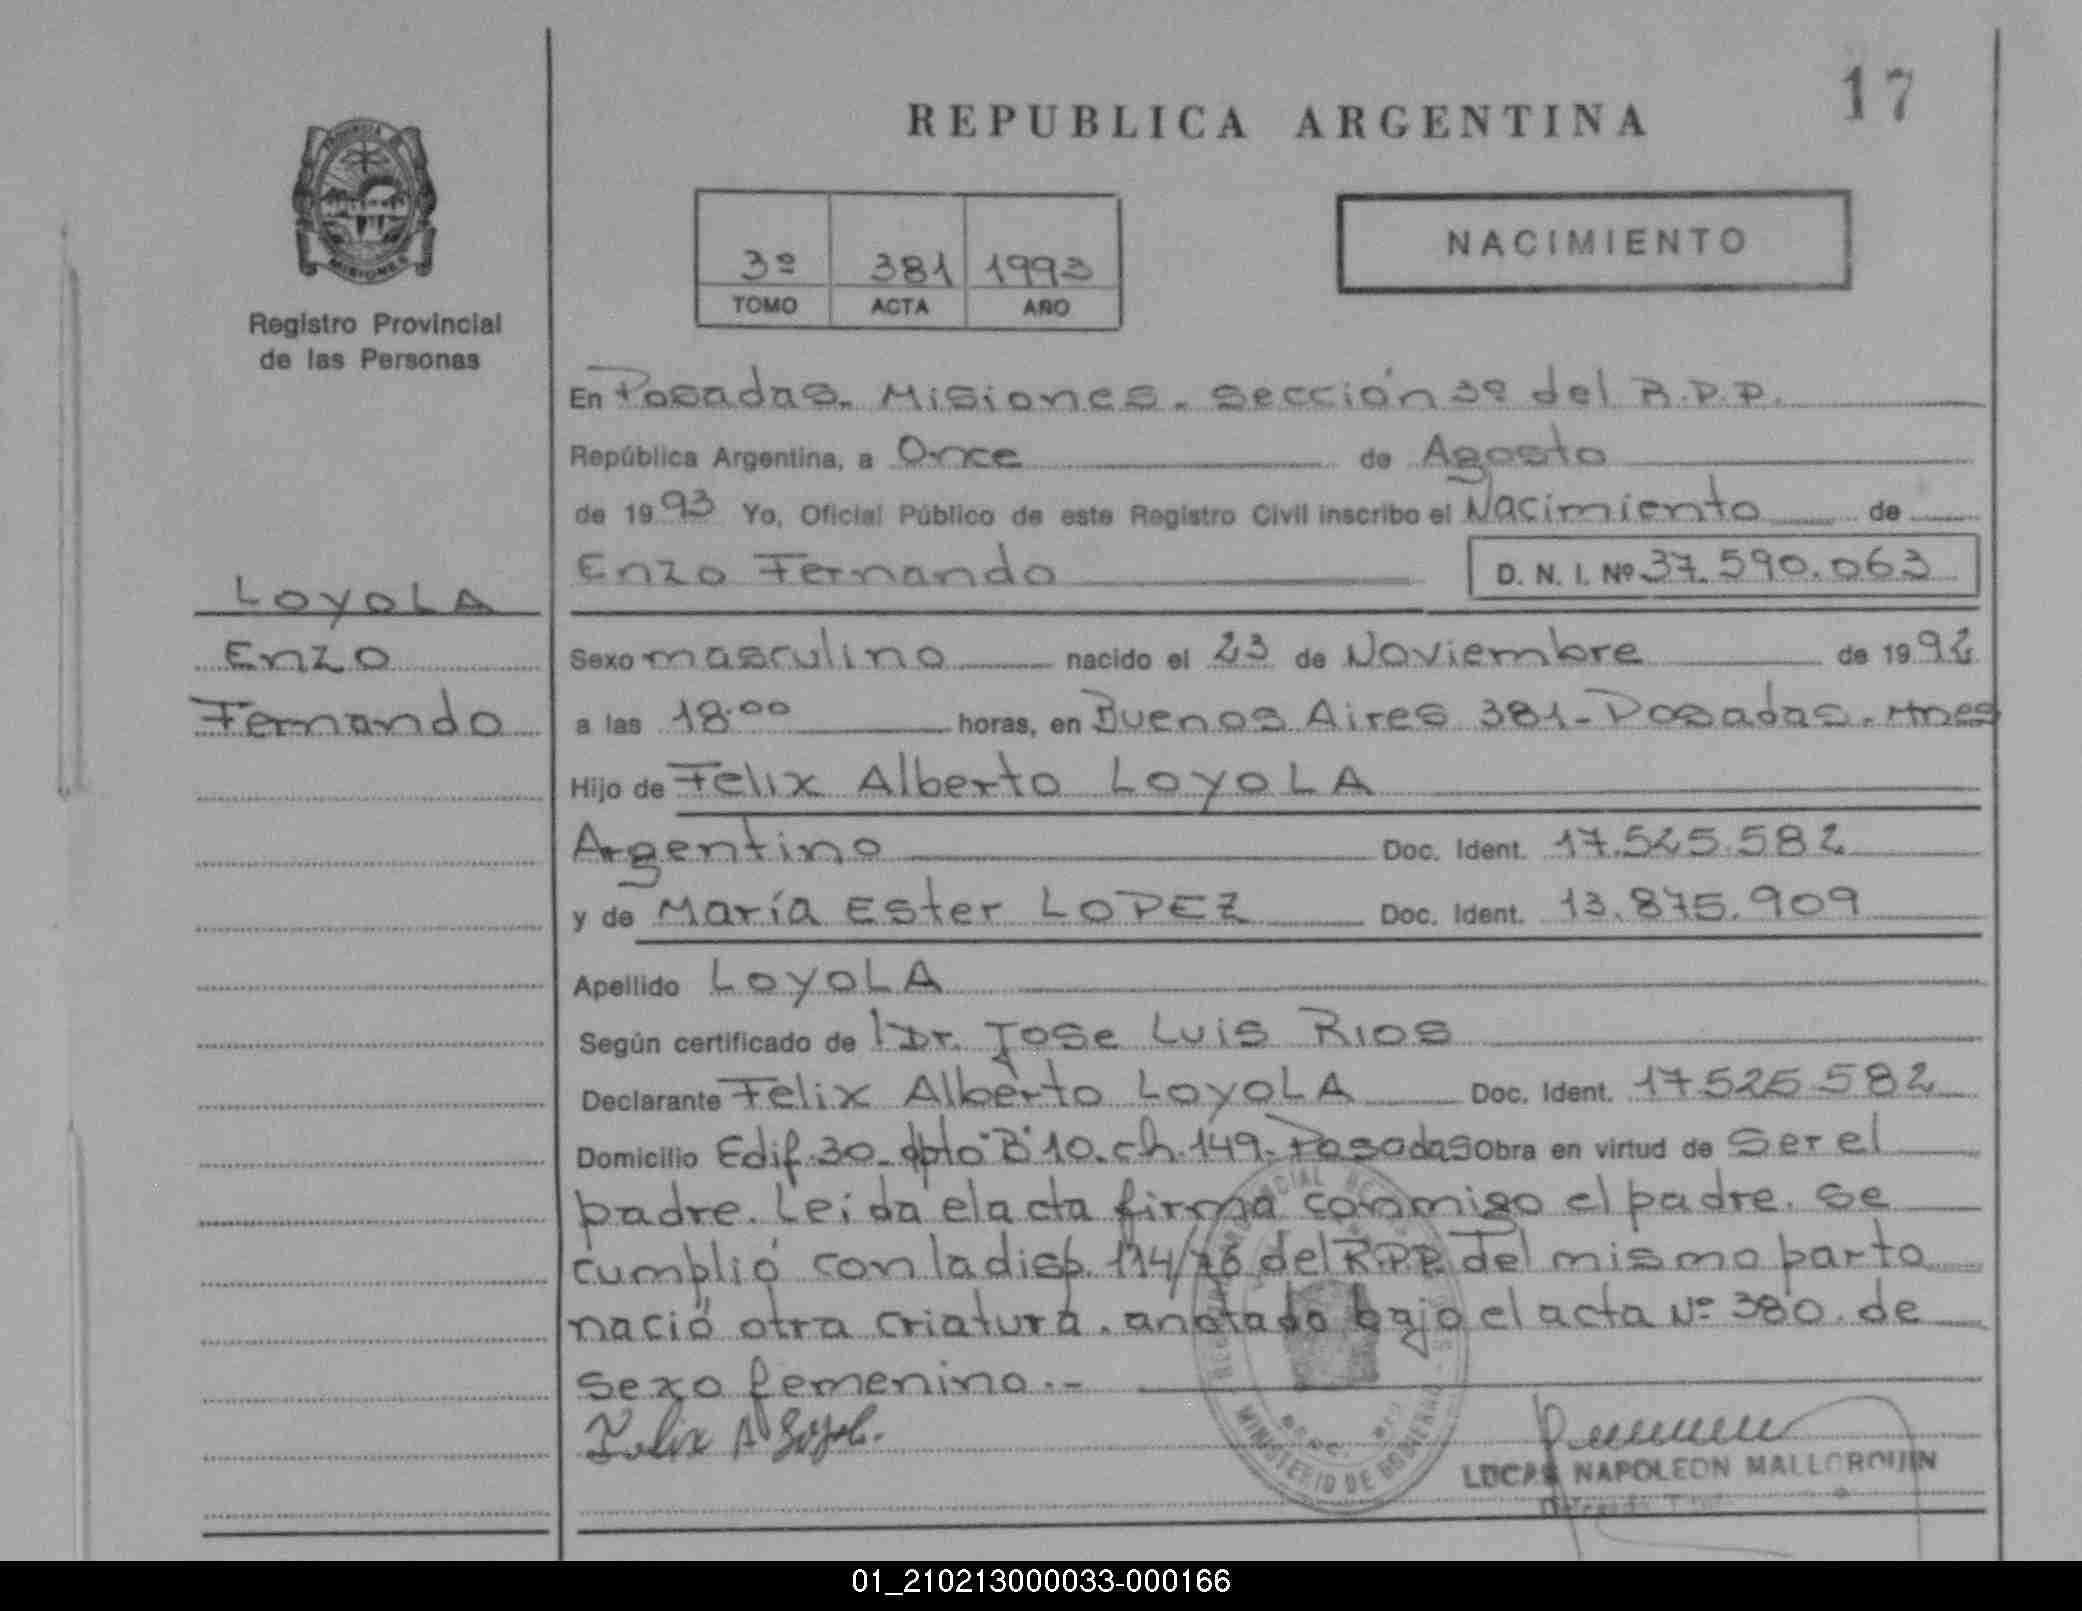 17
REPUBLICA ARGENTINA
NACIMIENTO
3º 381 1993
TOMO ACTA AÑO
PROVINCIA
MISIONES
Registro Provincial
de las Personas
LOYOLA
Enzo
Fernando
En Posadas. Misiones. sección 3º del R.P.P.
República Argentina, a Once de Agosto
de 1993 Yo, Oficial Público de este Registro Civil inscribo el Nacimiento de
Enzo Fernando D. N. I. Nº 37.590.063
Sexo masculino nacido el 23 de Noviembre de 1992
a las 18:00 horas, en Buenos Aires 381-Posadas.Mnes
Hijo de Felix Alberto LOYOLA
Argentino Doc. Ident. 17.525.582
y de María Ester LOPEZ Doc. Ident. 13.875.909
Apellido LOYOLA
Según certificado de Dr. Jose Luis Rios
Declarante Felix Alberto LOYOLA Doc. Ident. 17.525.582
Domicilio Edif.30-dpto"B"10.ch.149-Posadas Obra en virtud de ser el
padre. Leída el acta firma conmigo el padre. se
cumplió con la disp. 114/76 del R.P.P. Del mismo parto
nació otra criatura. anotado bajo el acta Nº 380. de
sexo femenino.-
Felix A Loyola.
MINISTERIO DE GOBIERNO
LUCAS NAPOLEON MALLORQUIN
01_210213000033-000166